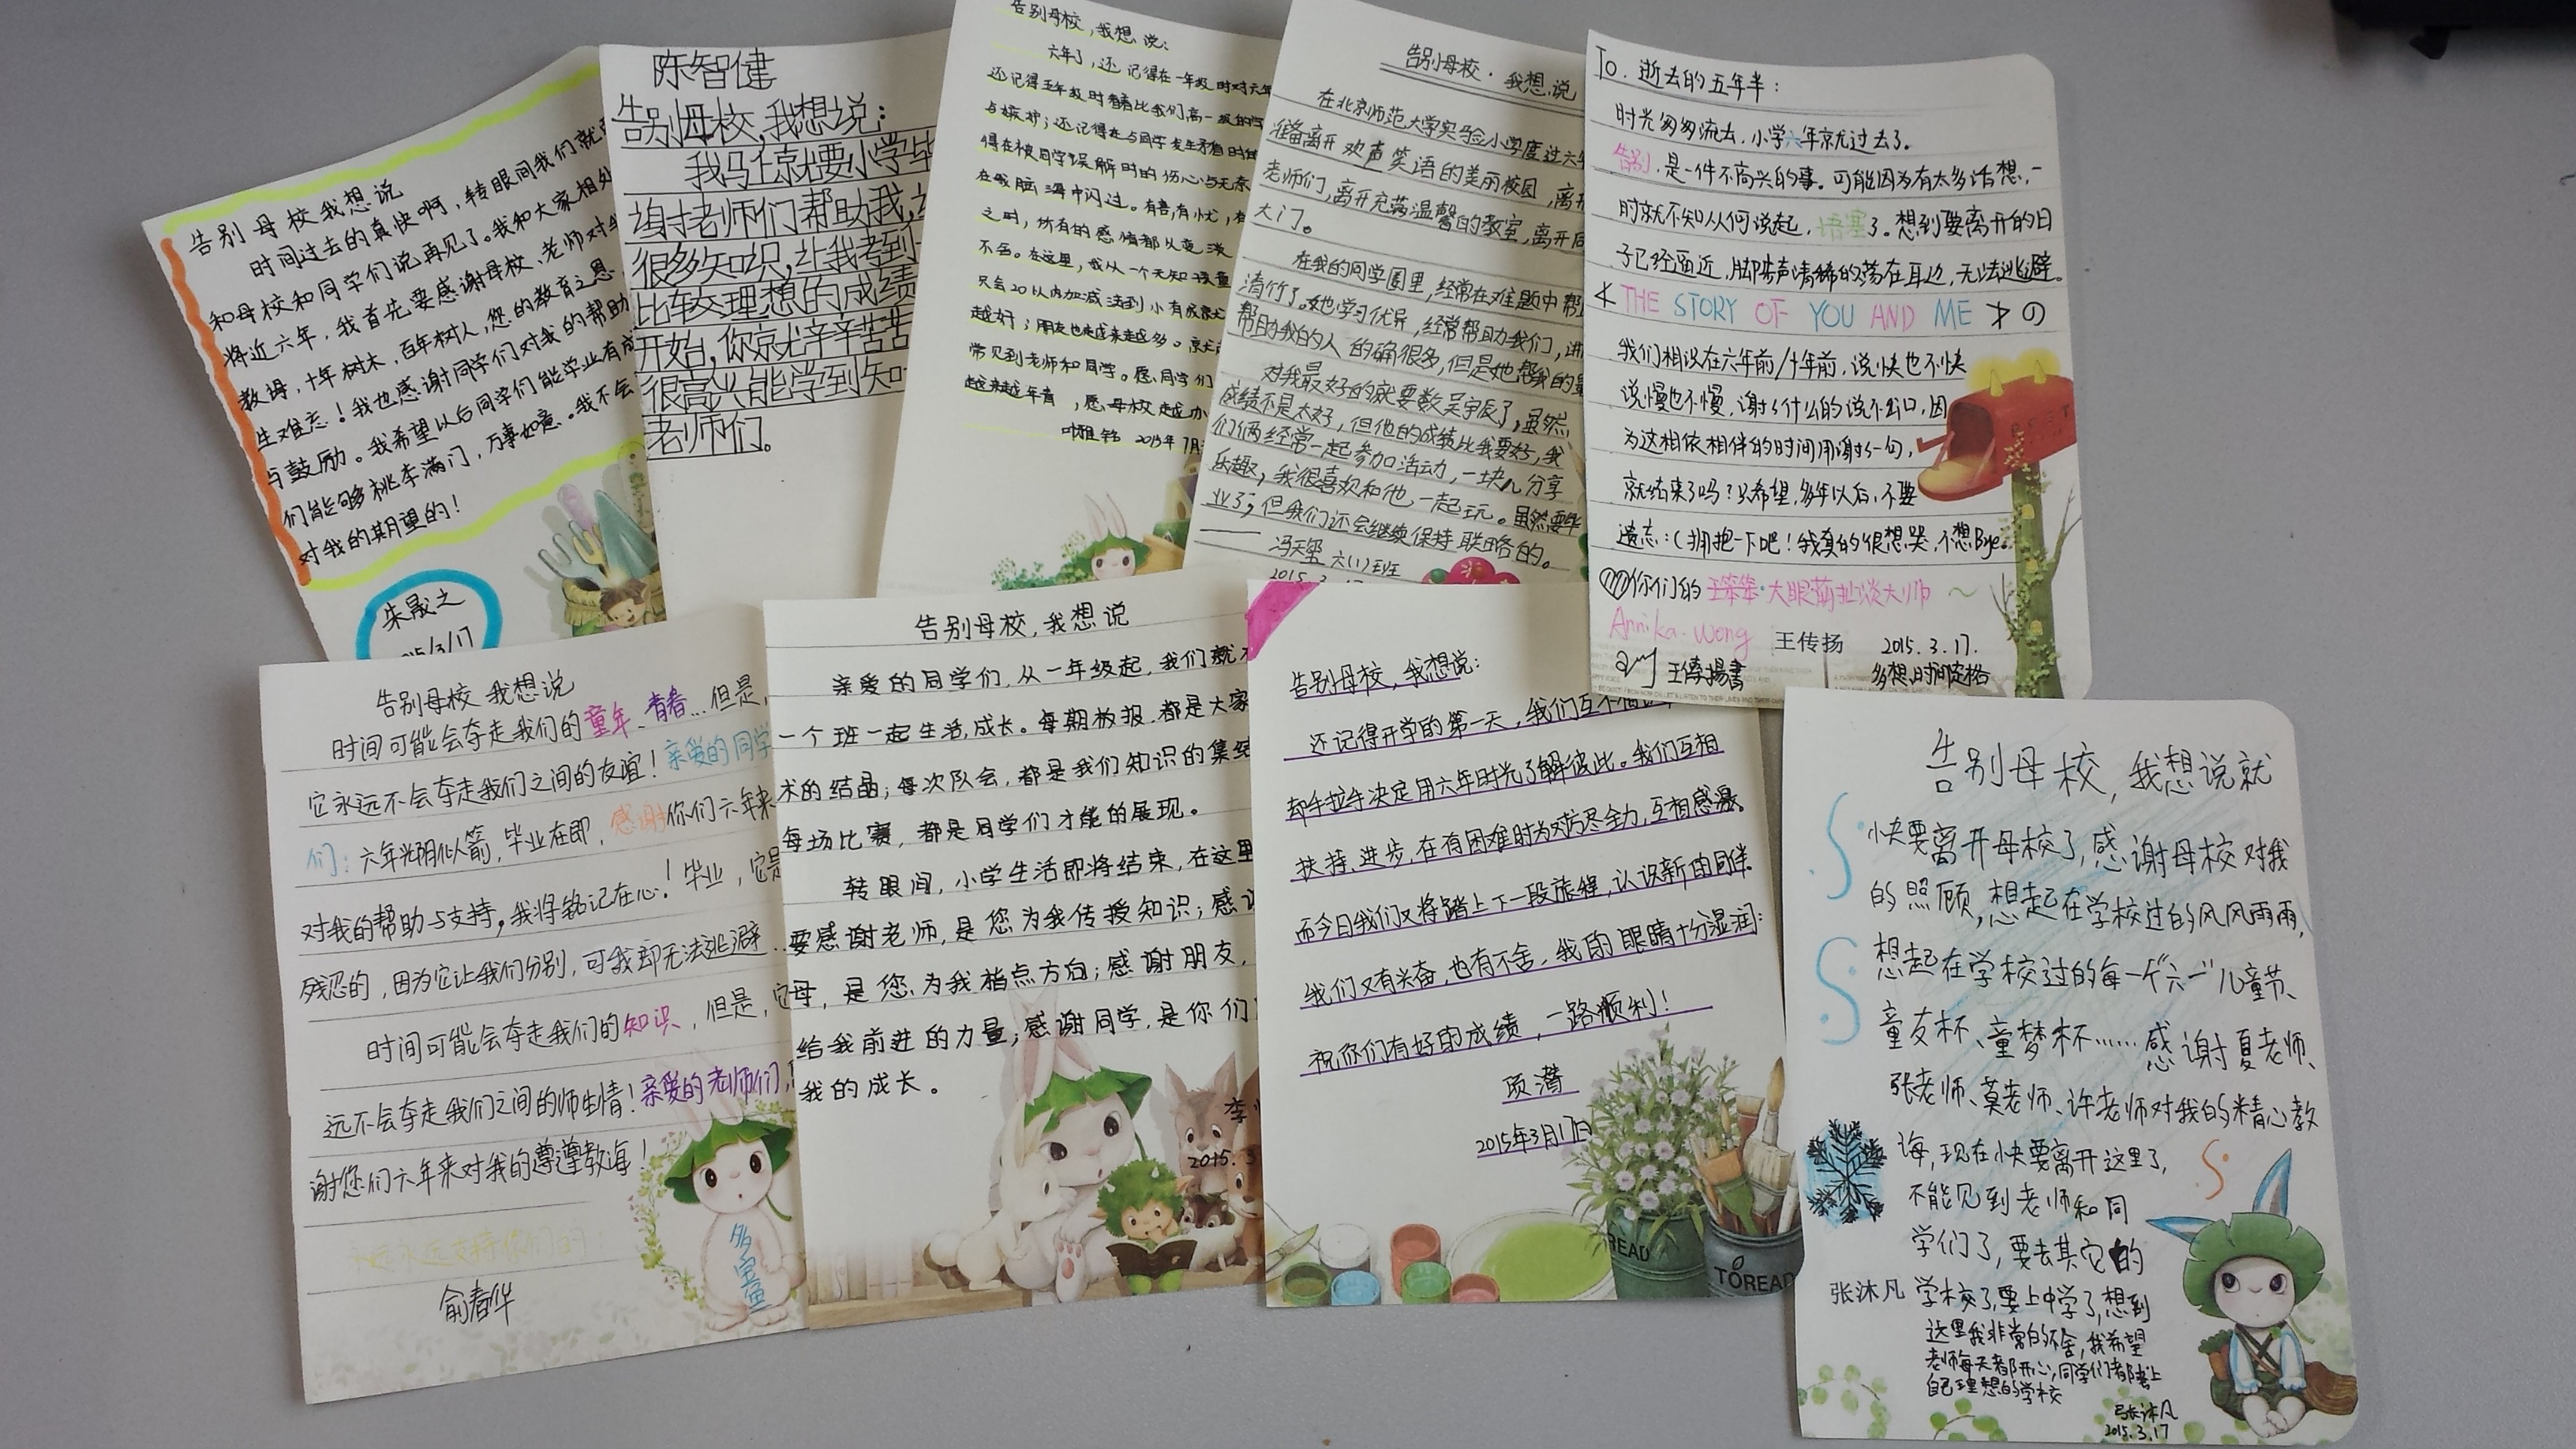 告别母校我想说
时间过去的真快啊，转眼间我们就
和母校和同学们说再见了。我和大家相处
将近六年，我首先要感谢母校、老师对
教诲，十年树木，百年树人，您的教育之恩，
生难忘！我也感谢同学们对我的帮助
与鼓励。我希望以后同学们能毕业有成
们能够桃李满门，万事如意。我不会
对我的期望的！
朱晟之
15/3/17
陈智健
告别母校，我想说：
我马上就要小学毕
老师们帮助我，
很多知识，让我考到
比较理想的成绩
开始，你就辛辛苦苦
很高兴能学到知
老师们。
告别母校，我想说：
六年了，还记得在一年级时对六年
还记得五年级时看着比我们高一级的学
与嫉妒；还记得在与同学发生矛盾时的
得在被同学误解时的伤心与无奈
在我脑海中闪过。有喜，有忧，有
之时，所有的感情都从变淡
不舍。在这里，我从一个无知孩童
只会20以内加减法到小有成就
越好；朋友也越来越多。
常见到老师和同学。愿，同学们
越来越年青，愿，母校越办
2015年
告别母校·我想说
在北京师范大学实验小学度过六年
准备离开欢声笑语的美丽校园，离开
老师们，离开充满温馨的教室，离开
大门。
在我的同学圈里，经常在难题中帮
清竹了。她学习优异，经常帮助我们，进
帮助我的人的确很多，但是她帮我的
对我最好的就要数吴宇辰了，虽然
成绩不是太好，但他的成绩比我要好，我
们俩经常一起参加活动，一块儿分享
乐趣，我很喜欢和他一起玩。虽然要毕
业了，但我们还会继续保持联络的。
六(1)班
2015.3.17
To.逝去的五年半：
时光匆匆流去，小学六年就过去了。
告别，是一件不高兴的事。可能因为有太多话想，一
时就不知从何说起，语塞了。想到要离开的日
子已经逼近，脚步声清晰的荡在耳边，无法逃避。
THE STORY OF YOU AND ME の
我们相识在六年前/十年前，说快也不快
说慢也不慢，谢谢什么的说不出口，因
为这相依相伴的时间用谢谢一句，
就结束了吗？只希望，多年以后，不要
遗忘:(拥抱一下吧！我真的很想哭，不想Bye。
你们的王笨笨·大眼萌扯淡大师～
Annika·Wong 王传扬 2015.3.17.
王傳揚書 多想，时间定格
告别母校 我想说
时间可能会夺走我们的童年、青春…但是，
它永远不会夺走我们之间的友谊！亲爱的同学
们：六年光阴似箭，毕业在即，感谢你们六年来
对我的帮助与支持，我将铭记在心！毕业，它是
残忍的，因为它让我们分别，可我却无法逃避…
时间可能会夺走我们的知识，但是，它
远不会夺走我们之间的师生情！亲爱的老师们，
谢您们六年来对我的遵遵教诲！
永远永远支持你们的：
俞春华
多宝鱼
告别母校，我想说
亲爱的同学们，从一年级起，我们就
一个班一起生活，成长。每期板报，都是大家
术的结晶；每次队会，都是我们知识的集结
每场比赛，都是同学们才能的展现。
转眼间，小学生活即将结束，在这里
要感谢老师，是您为我传授知识；感谢
母，是您为我指点方向；感谢朋友，
给我前进的力量；感谢同学，是你们
我的成长。
李
2015.3
告别母校，我想说：
还记得开学的第一天，我们互不相识
却手拉手决定用六年时光了解彼此。我们互相
扶持、进步，在有困难时为对方尽全力，互相感激。
而今日我们又将踏上下一段旅程，认识新的同伴。
我们又有兴奋，也有不舍，我的眼睛十分湿润：
祝你们有好的成绩，一路顺利！
项潜
2015年3月17日
READ
TOREAD
告别母校，我想说就
快要离开母校了，感谢母校对我
的照顾，想起在学校过的风风雨雨，
想起在学校过的每一个“六一”儿童节、
童友杯、童梦杯……感谢夏老师、
张老师、莫老师、许老师对我的精心教
诲，现在快要离开这里了，
不能见到老师和同
学们了，要去其它的
张沐凡 学校了，要上中学了，想到
这里我非常的不舍，我希望
老师每天都开心，同学们都考上
自己理想的学校
张沐凡
2015.3.17